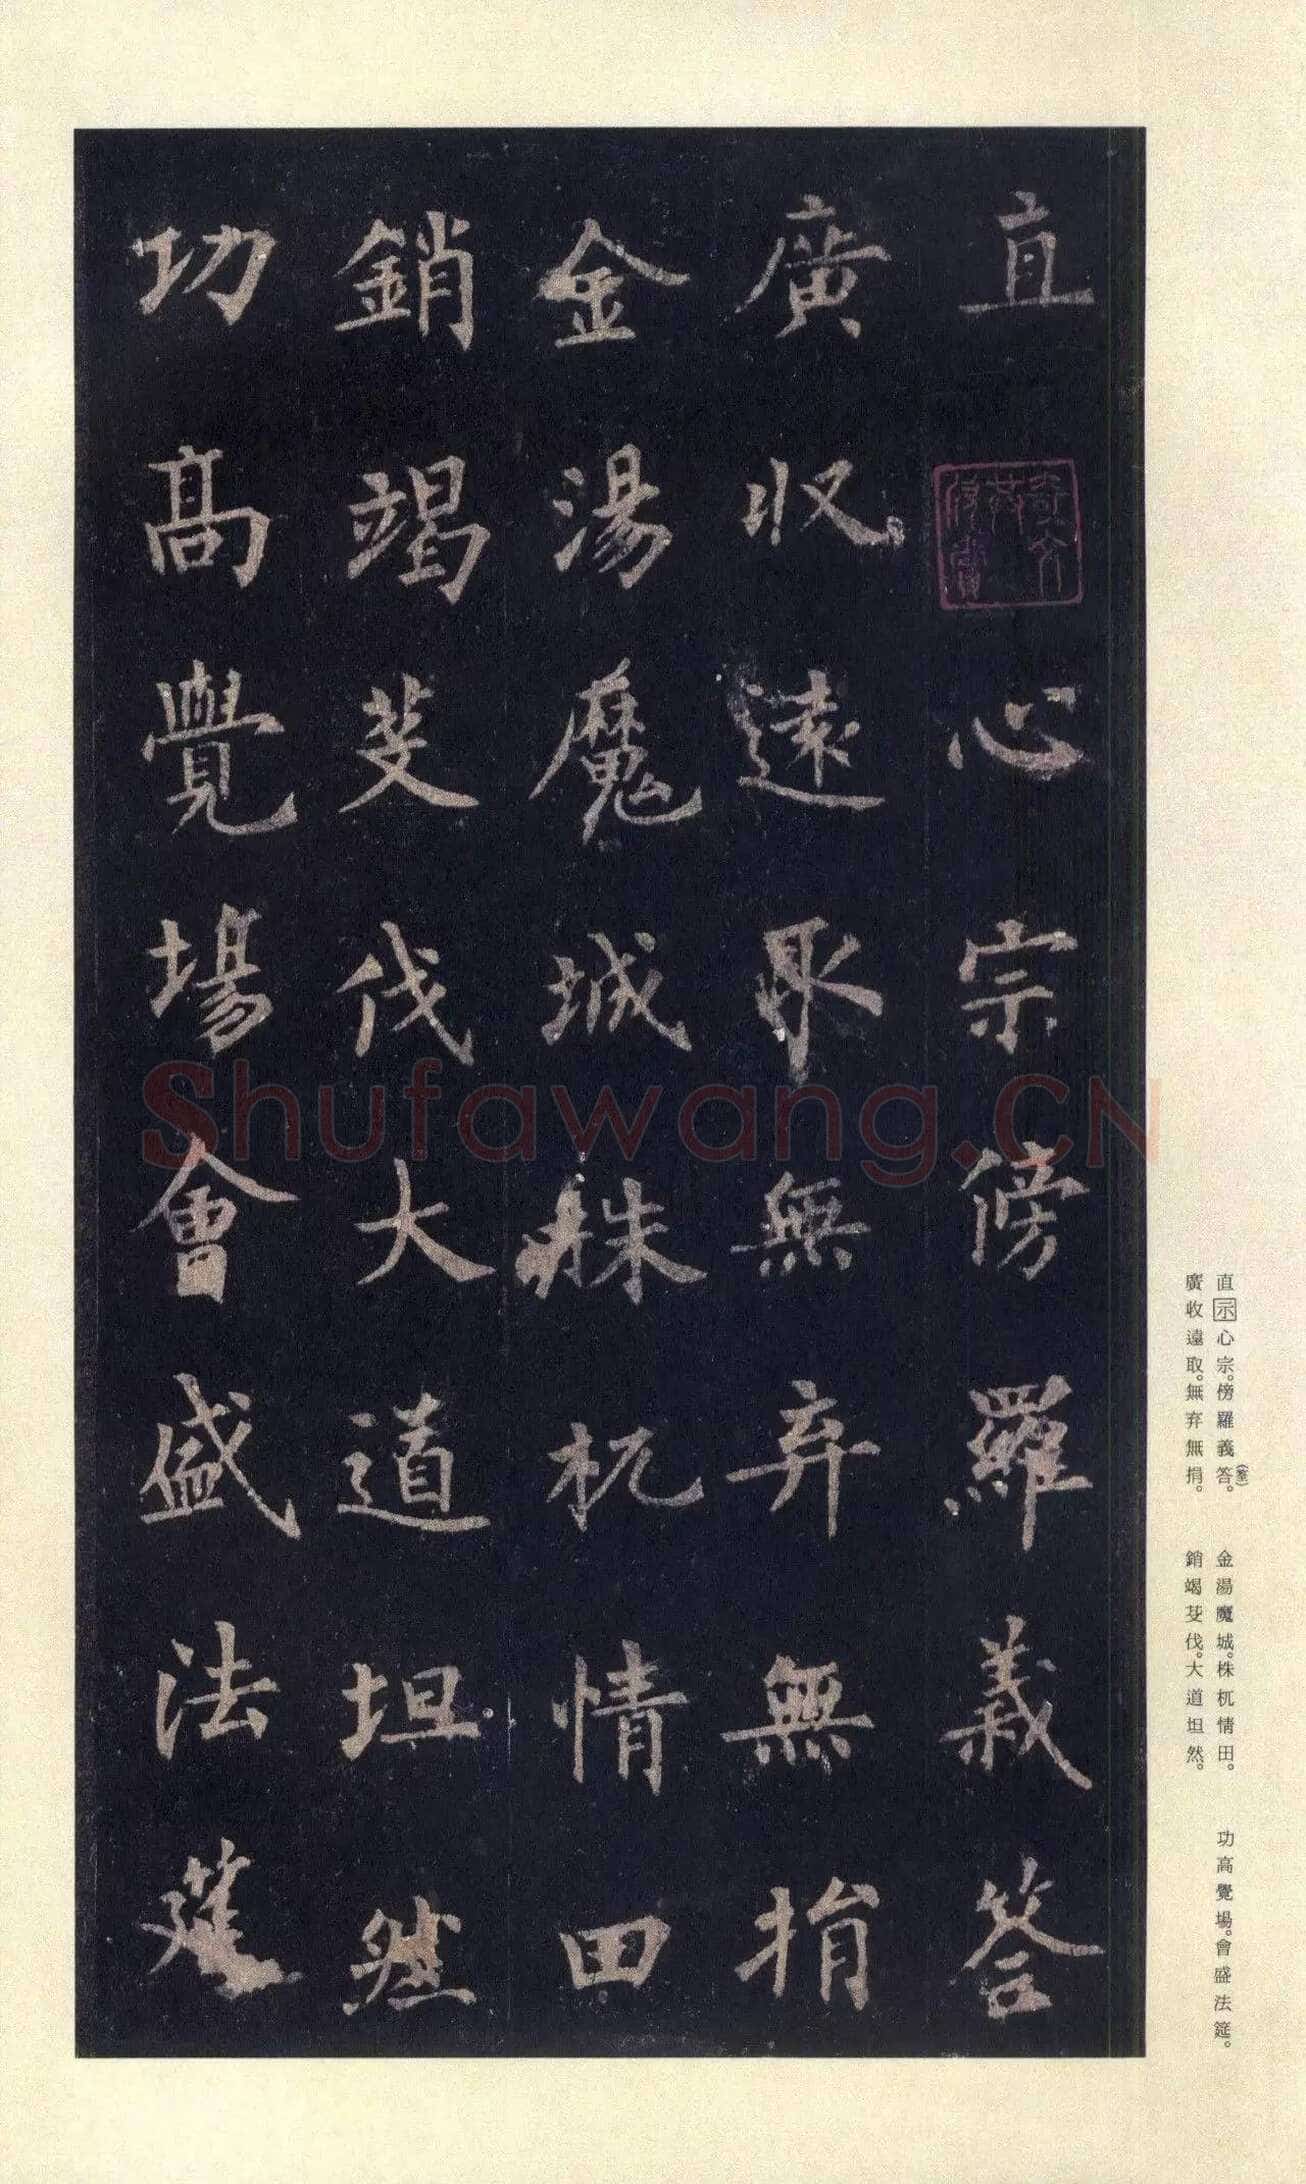 直心宗傍羅義荅
廣收遠取無弃無捐
金湯魔城株杌情田
銷竭芟伐大道坦然
功高覺場會盛法莚
Shufawang.CN
直示心宗。傍羅義答。
廣收遠取。無弃無捐。
金湯魔城。株杌情田。
銷竭芟伐。大道坦然。
功高覺場。會盛法筵。